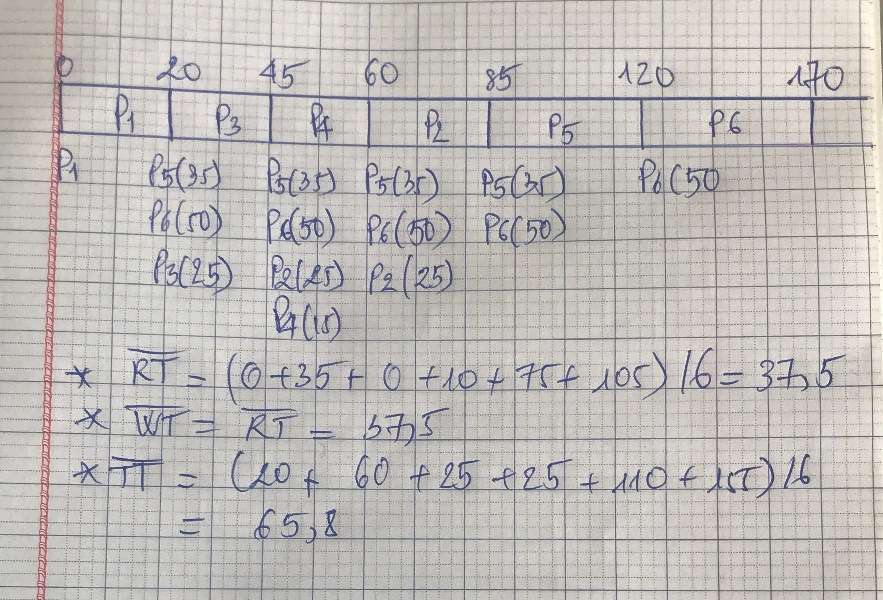 0 20 45 60 85 120 170
P1 P3 P4 P2 P5 P6
P1 P5(35) P5(35) P5(35) P5(35) P6(50
P6(50) P6(50) P6(50) P6(50)
P3(25) P2(25) P2(25)
P4(15)
* RT = (0+35+0+10+75+105)/6=37,5
* WT = RT = 37,5
* TT = (20+60+25+25+110+155)/6
= 65,8